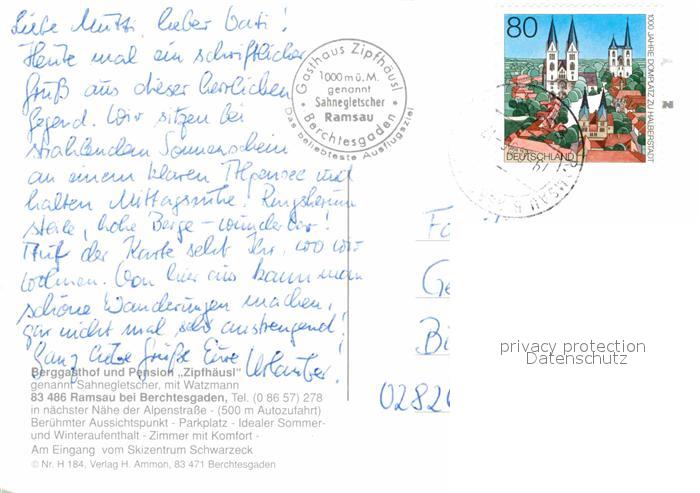 Liebe Mutti, lieber Vati!
Heute mal ein schriftlicher
Gruß aus dieser herrlichen
Gegend. Wir sitzen bei
strahlendem Sonnenschein
an einem klaren Alpensee und
halten Mittagsruhe! Ringsherum
steile, hohe Berge – wunderbar!
Auf der Karte seht Ihr, wo wir
wohnen. Von hier aus kann man
schöne Wanderungen machen,
gar nicht mal sehr anstrengend!
Ganz liebe Grüße Eure Urlauber!
Gasthaus Zipfhäusl
1000 m ü. M.
genannt
Sahnegletscher
Ramsau
Berchtesgaden
Das beliebteste Ausflugsziel
80
1000 JAHRE DOMPLATZ ZU HALBERSTADT
DEUTSCHLAND
Fa
Ge
Bi
0282
privacy protection
Datenschutz
Berggasthof und Pension „Zipfhäusl"
genannt Sahnegletscher, mit Watzmann
83 486 Ramsau bei Berchtesgaden, Tel. (0 86 57) 278
in nächster Nähe der Alpenstraße - (500 m Autozufahrt)
Berühmter Aussichtspunkt - Parkplatz - Idealer Sommer-
und Winteraufenthalt - Zimmer mit Komfort -
Am Eingang vom Skizentrum Schwarzeck
© Nr. H 184, Verlag H. Ammon, 83 471 Berchtesgaden